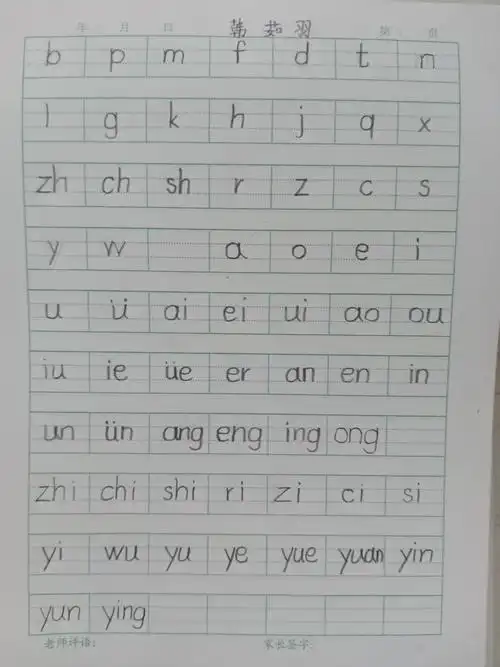 年 月 日 韩茹羽 第 页
b p m f d t n
l g k h j q x
zh ch sh r z c s
y w a o e i
u ü ai ei ui ao ou
iu ie üe er an en in
un ün ang eng ing ong
zhi chi shi ri zi ci si
yi wu yu ye yue yuan yin
yun ying
老师评语: 家长签字: